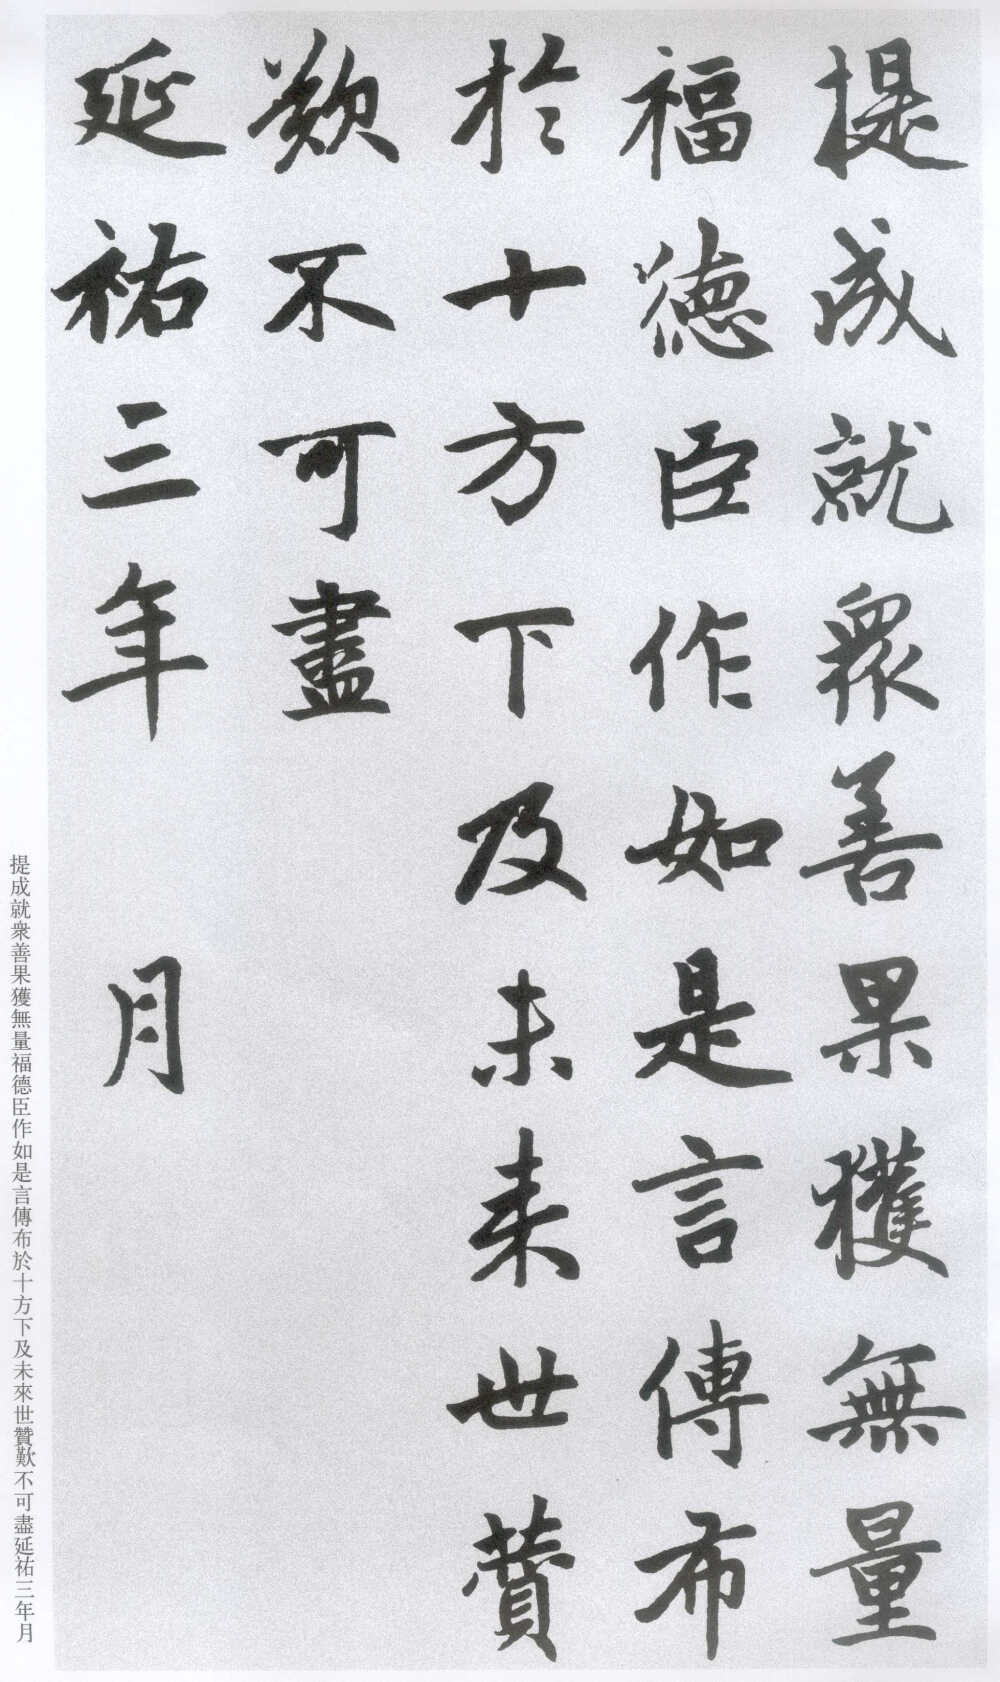 提成就衆善果獲無量
福德臣作如是言傳布
於十方下及未來世贊
歎不可盡
延祐三年月
提成就衆善果獲無量福德臣作如是言傳布於十方下及未來世贊歎不可盡延祐三年月